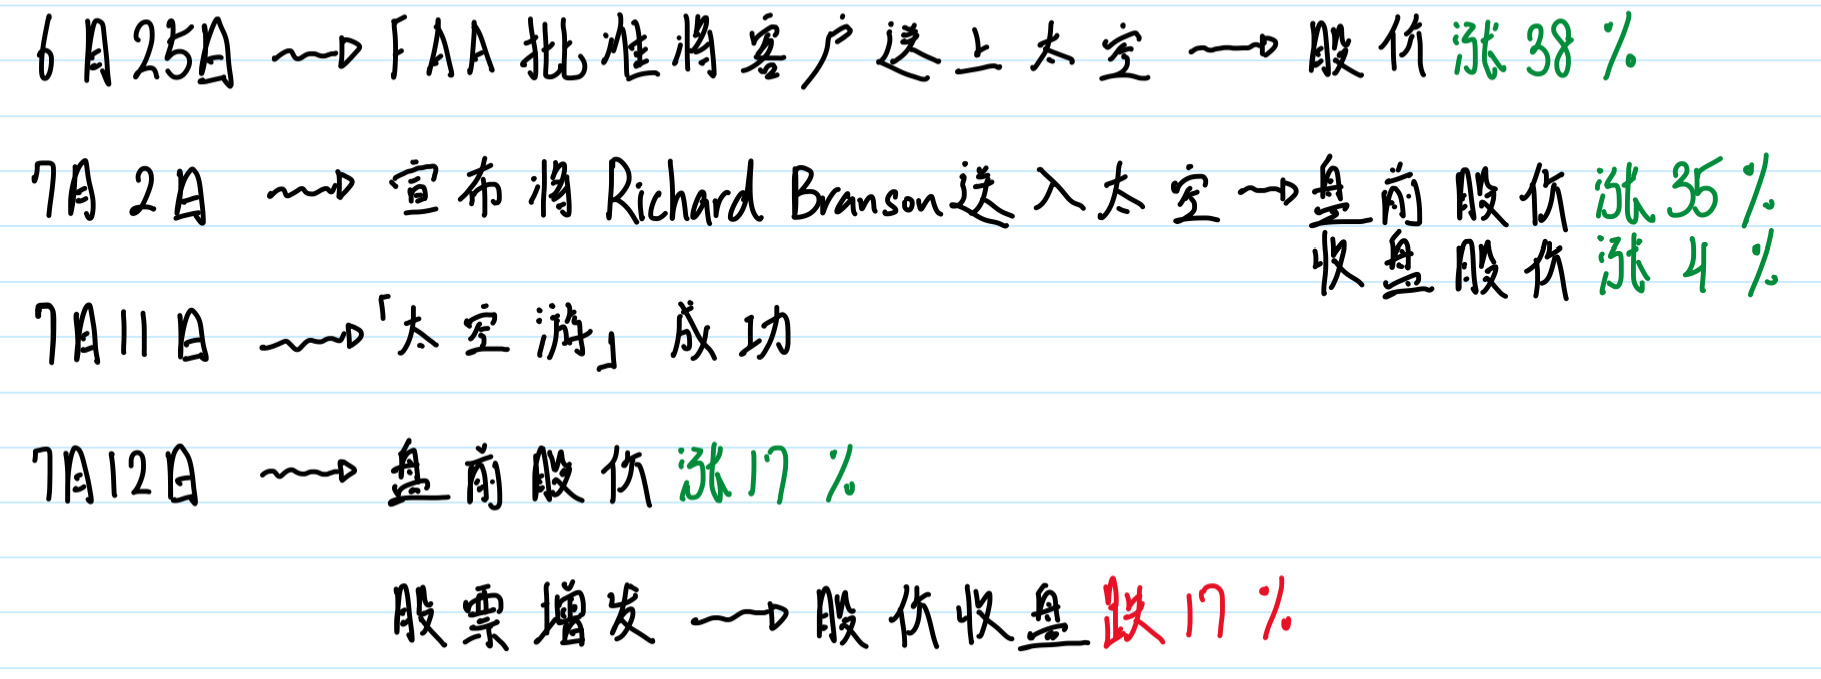 6月25日 → FAA批准将客户送上太空 → 股价涨38%
7月2日 → 宣布将Richard Branson送入太空 → 盘前股价涨35%
收盘股价涨4%
7月11日 → 「太空游」成功
7月12日 → 盘前股价涨17%
股票增发 → 股价收盘跌17%